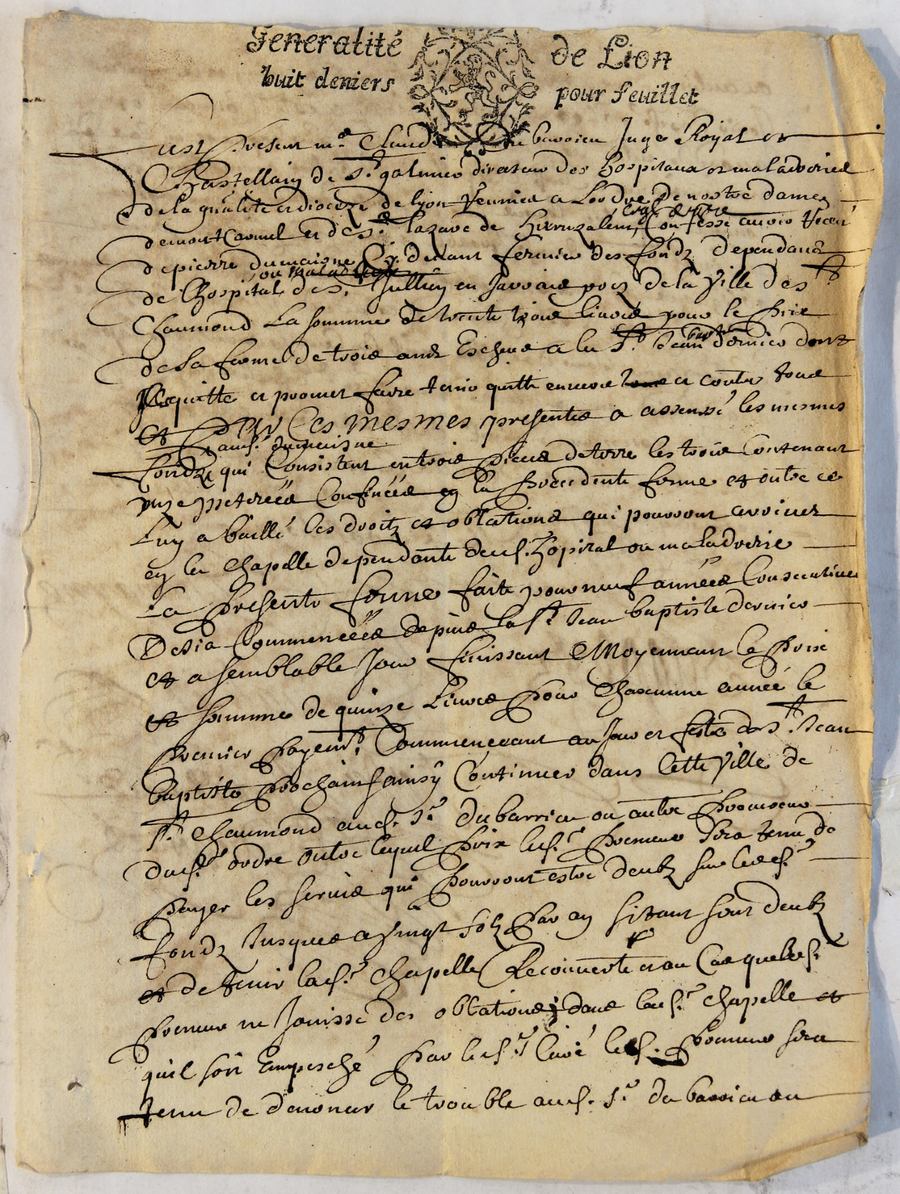 Generalité de Lion
huit deniers pour feuillet
fust present mʳ Claud du barrieu Juge Royal et
Chastellain de Sᵗ galmier directeur des hospitaux et maladreries
de la gnalité et diocèze de lyon Reunies a Lordre de nostre dame
demont Carmel et de Sᵗ lazare de hierusalem, Confesse auoir Receu
de pierre dumaigne Cy deuant fermier des fondz dependant
ou maladrerie
de lhospital de Sᵗ Jullien en Jarroist pres de la Ville de Sᵗ
Chaumond La somme de trente trois liures pour le prix
de sa ferme de trois ans Escheus a la Sᵗ Jean dernier dont
Il quitte et promet faire tenir quitte enuers et contre tous
et par ces mesmes presentes a assensé les mesmes
aud. dumaigne
fondz qui Consistent en trois pieces de terre les trois Contenant
Confinées en la precedente ferme et outre ce
Luy a baillé les droitz et oblations qui pourront arriuer
en la chapelle dependante dud. hopital ou maladrerie
La presente ferme faite pour neuf années Consecutiues
Desia Commencées depuis la Sᵗ Jean baptiste dernier
et a semblable Jour finissant Moyennant le prix
et somme de quinze Liures pour chascune année le
premier payemᵗ Commencant au Jour et feste de Sᵗ Jean
baptiste prochain & ainsy Continuer dans Cette Ville de
Sᵗ chaumond aud. Sʳ du barrieu ou autre procureur
dud. ordre outre lequel prix led. preneur sera tenu de
payer les seruis qui pourront estre deubz sur lesd.
fondz Jusques a Vingt solz par an si tant sont deubz
et de tenir lad. chapelle Recouuerte et au Cas que led.
preneur ne Jouisse des oblations dans lad. chapelle et
quil soit Empesché par le Sʳ Curé led. preneur sera
tenu de denoncer le trouble aud. Sʳ du barrieu ou